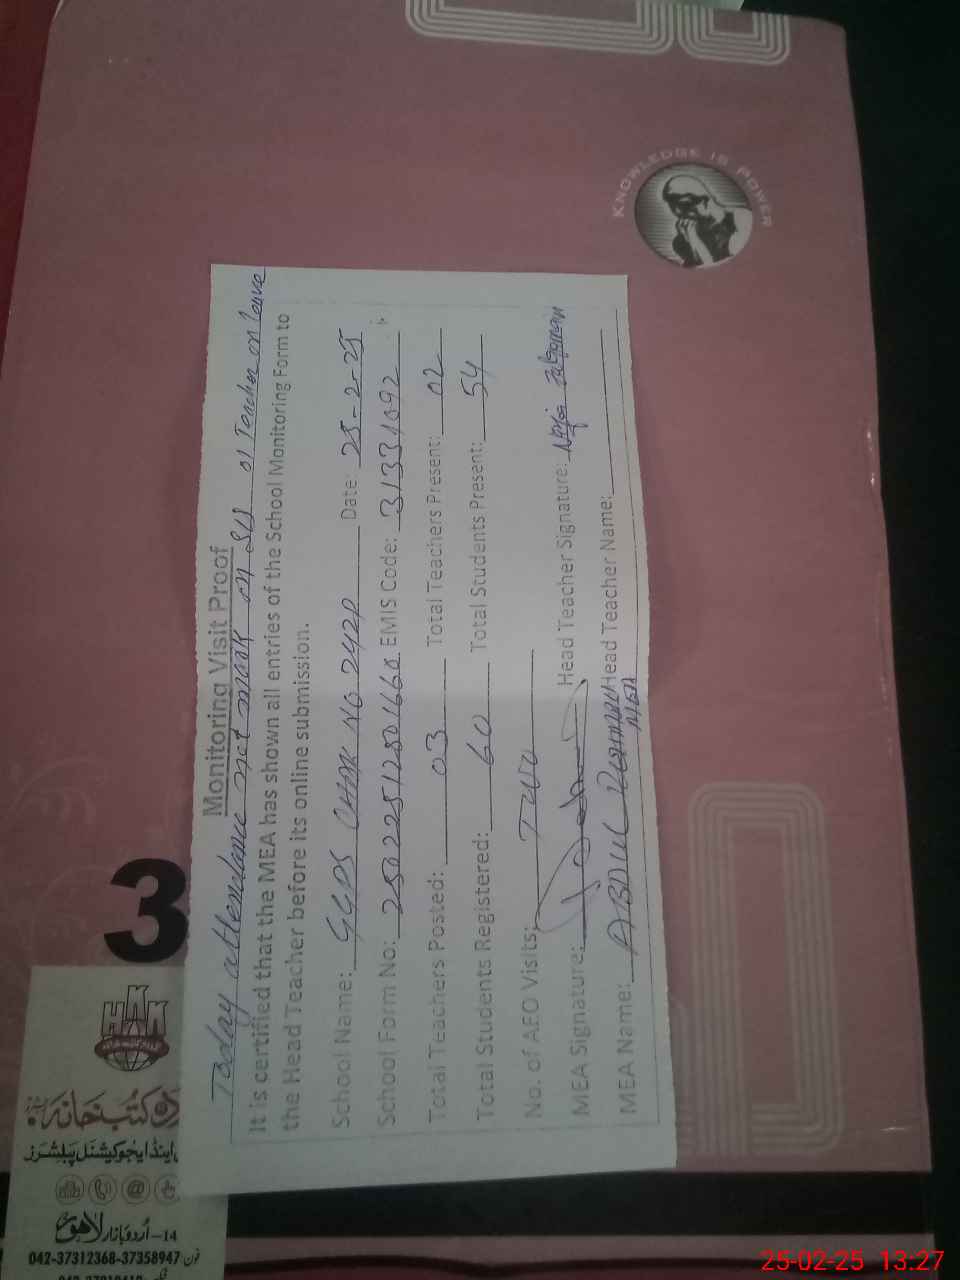 KNOWLEDGE IS POWER
Monitoring Visit Proof
Today attendance not mark on SIS 01 Teacher on leave
It is certified that the MEA has shown all entries of the School Monitoring Form to
the Head Teacher before its online submission.
School Name: GGPS CHAK NO 242P Date: 25-2-25
School Form No: 25022512501660 EMIS Code: 31331092
Total Teachers Posted: 03 Total Teachers Present: 02
Total Students Registered: 60 Total Students Present: 54
No. of AEO Visits: Two
MEA Signature: Head Teacher Signature:
MEA Name: ABDUL Head Teacher Name:
MEA
3
HAK
کتب خانہ
اینڈ ایجوکیشنل پبلشرز
14-اُردو بازار لاہور
فون 042-37312368-37358947
25-02-25 13:27